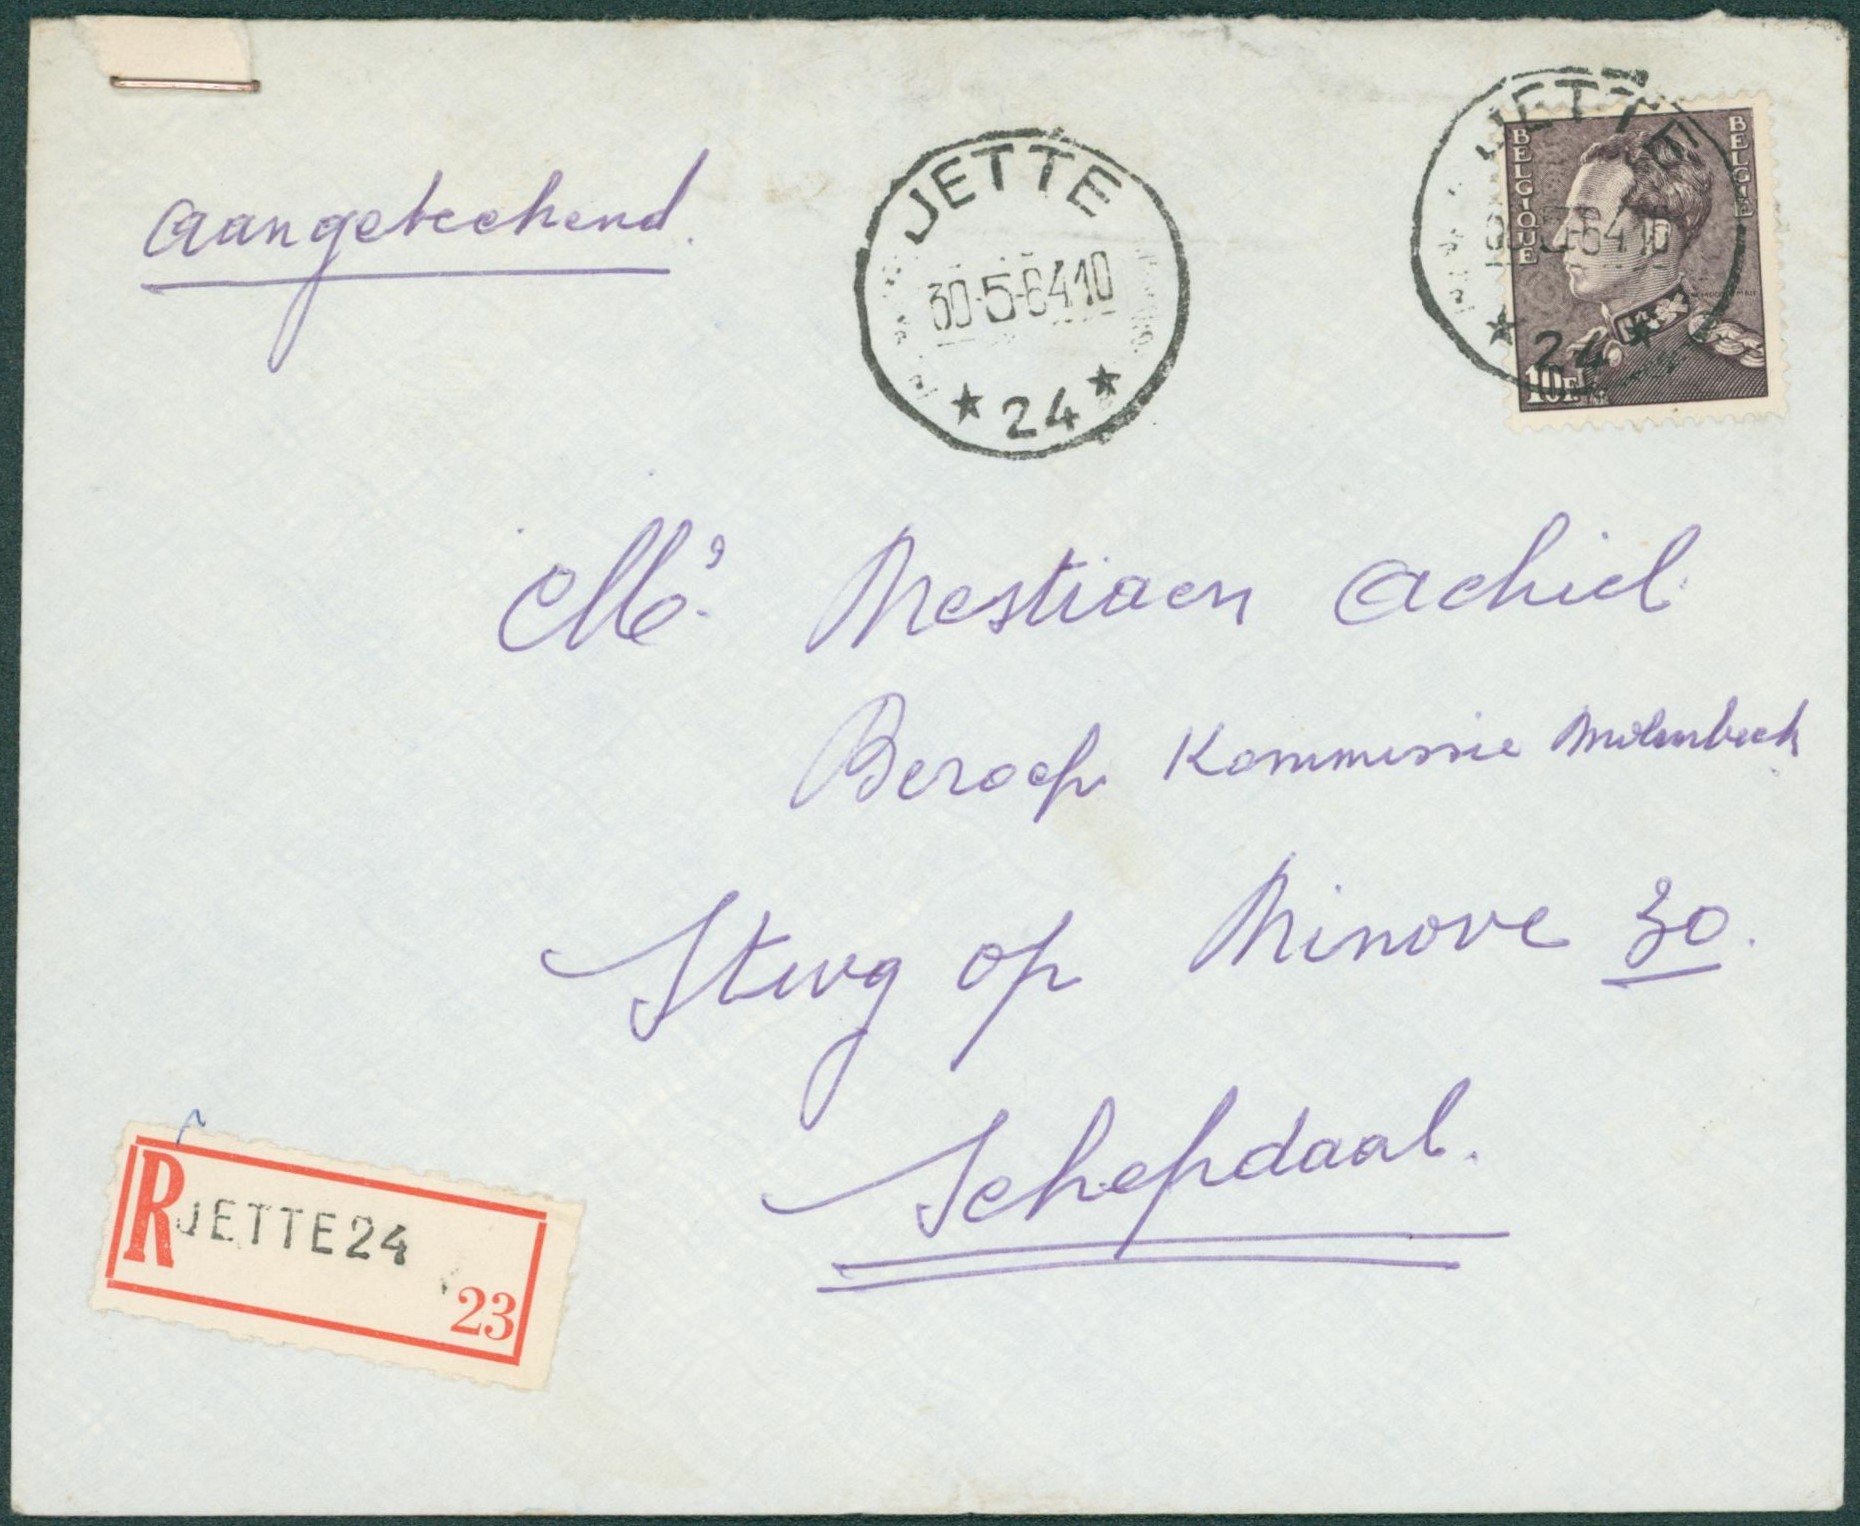 Aangeteekend.
JETTE
30-5-64 10
24
JETTE
30-5-64 10
24
BELGIQUE
BELGIË
10F
Mr. Mestiaen Achiel
Beroep Kommissie Molenbeek
Stwg op Ninove 30.
Schepdaal.
R JETTE 24
23